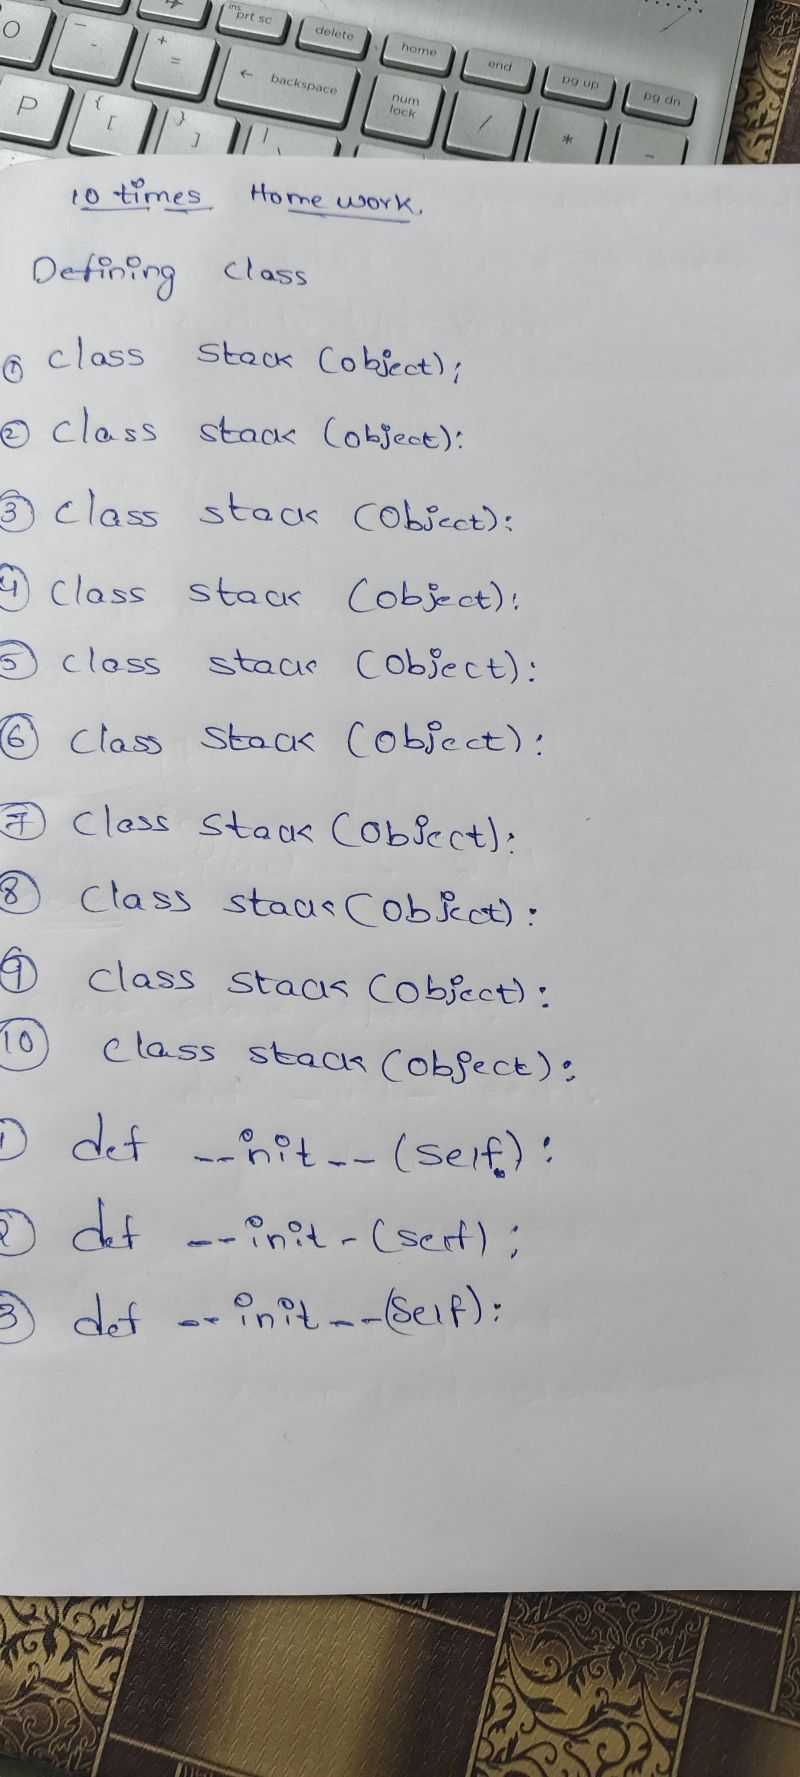 O - + = ins prt sc delete home end pg up pg dn
P { [ } ] ← backspace num lock / * -
10 times Home work.
Defining class
① class Stack (object);
② class stack (object):
③ class stack (object):
④ class stack (object):
⑤ class stack (object):
⑥ class Stack (object):
⑦ class Stack (object):
⑧ class stack (object):
⑨ class stack (object):
⑩ class stack (object):
① def --init-- (self):
② def --init- (self);
③ def --init-- (Self):